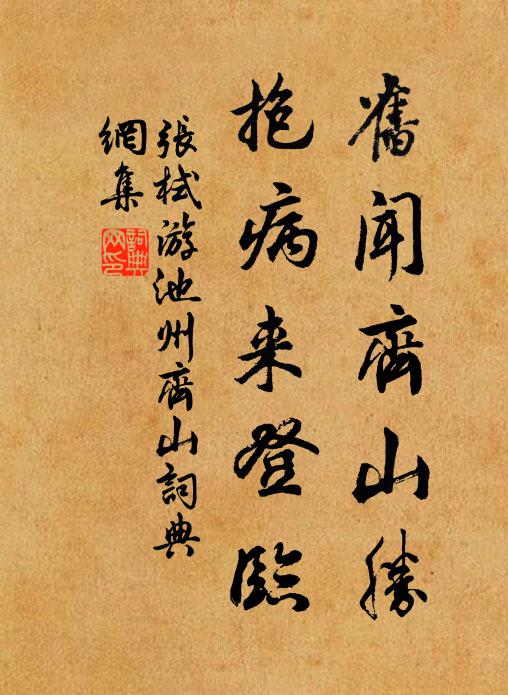 舊聞齊山勝
抱病来登臨
張栻游池州齊山詞典
網集
詞典
网印